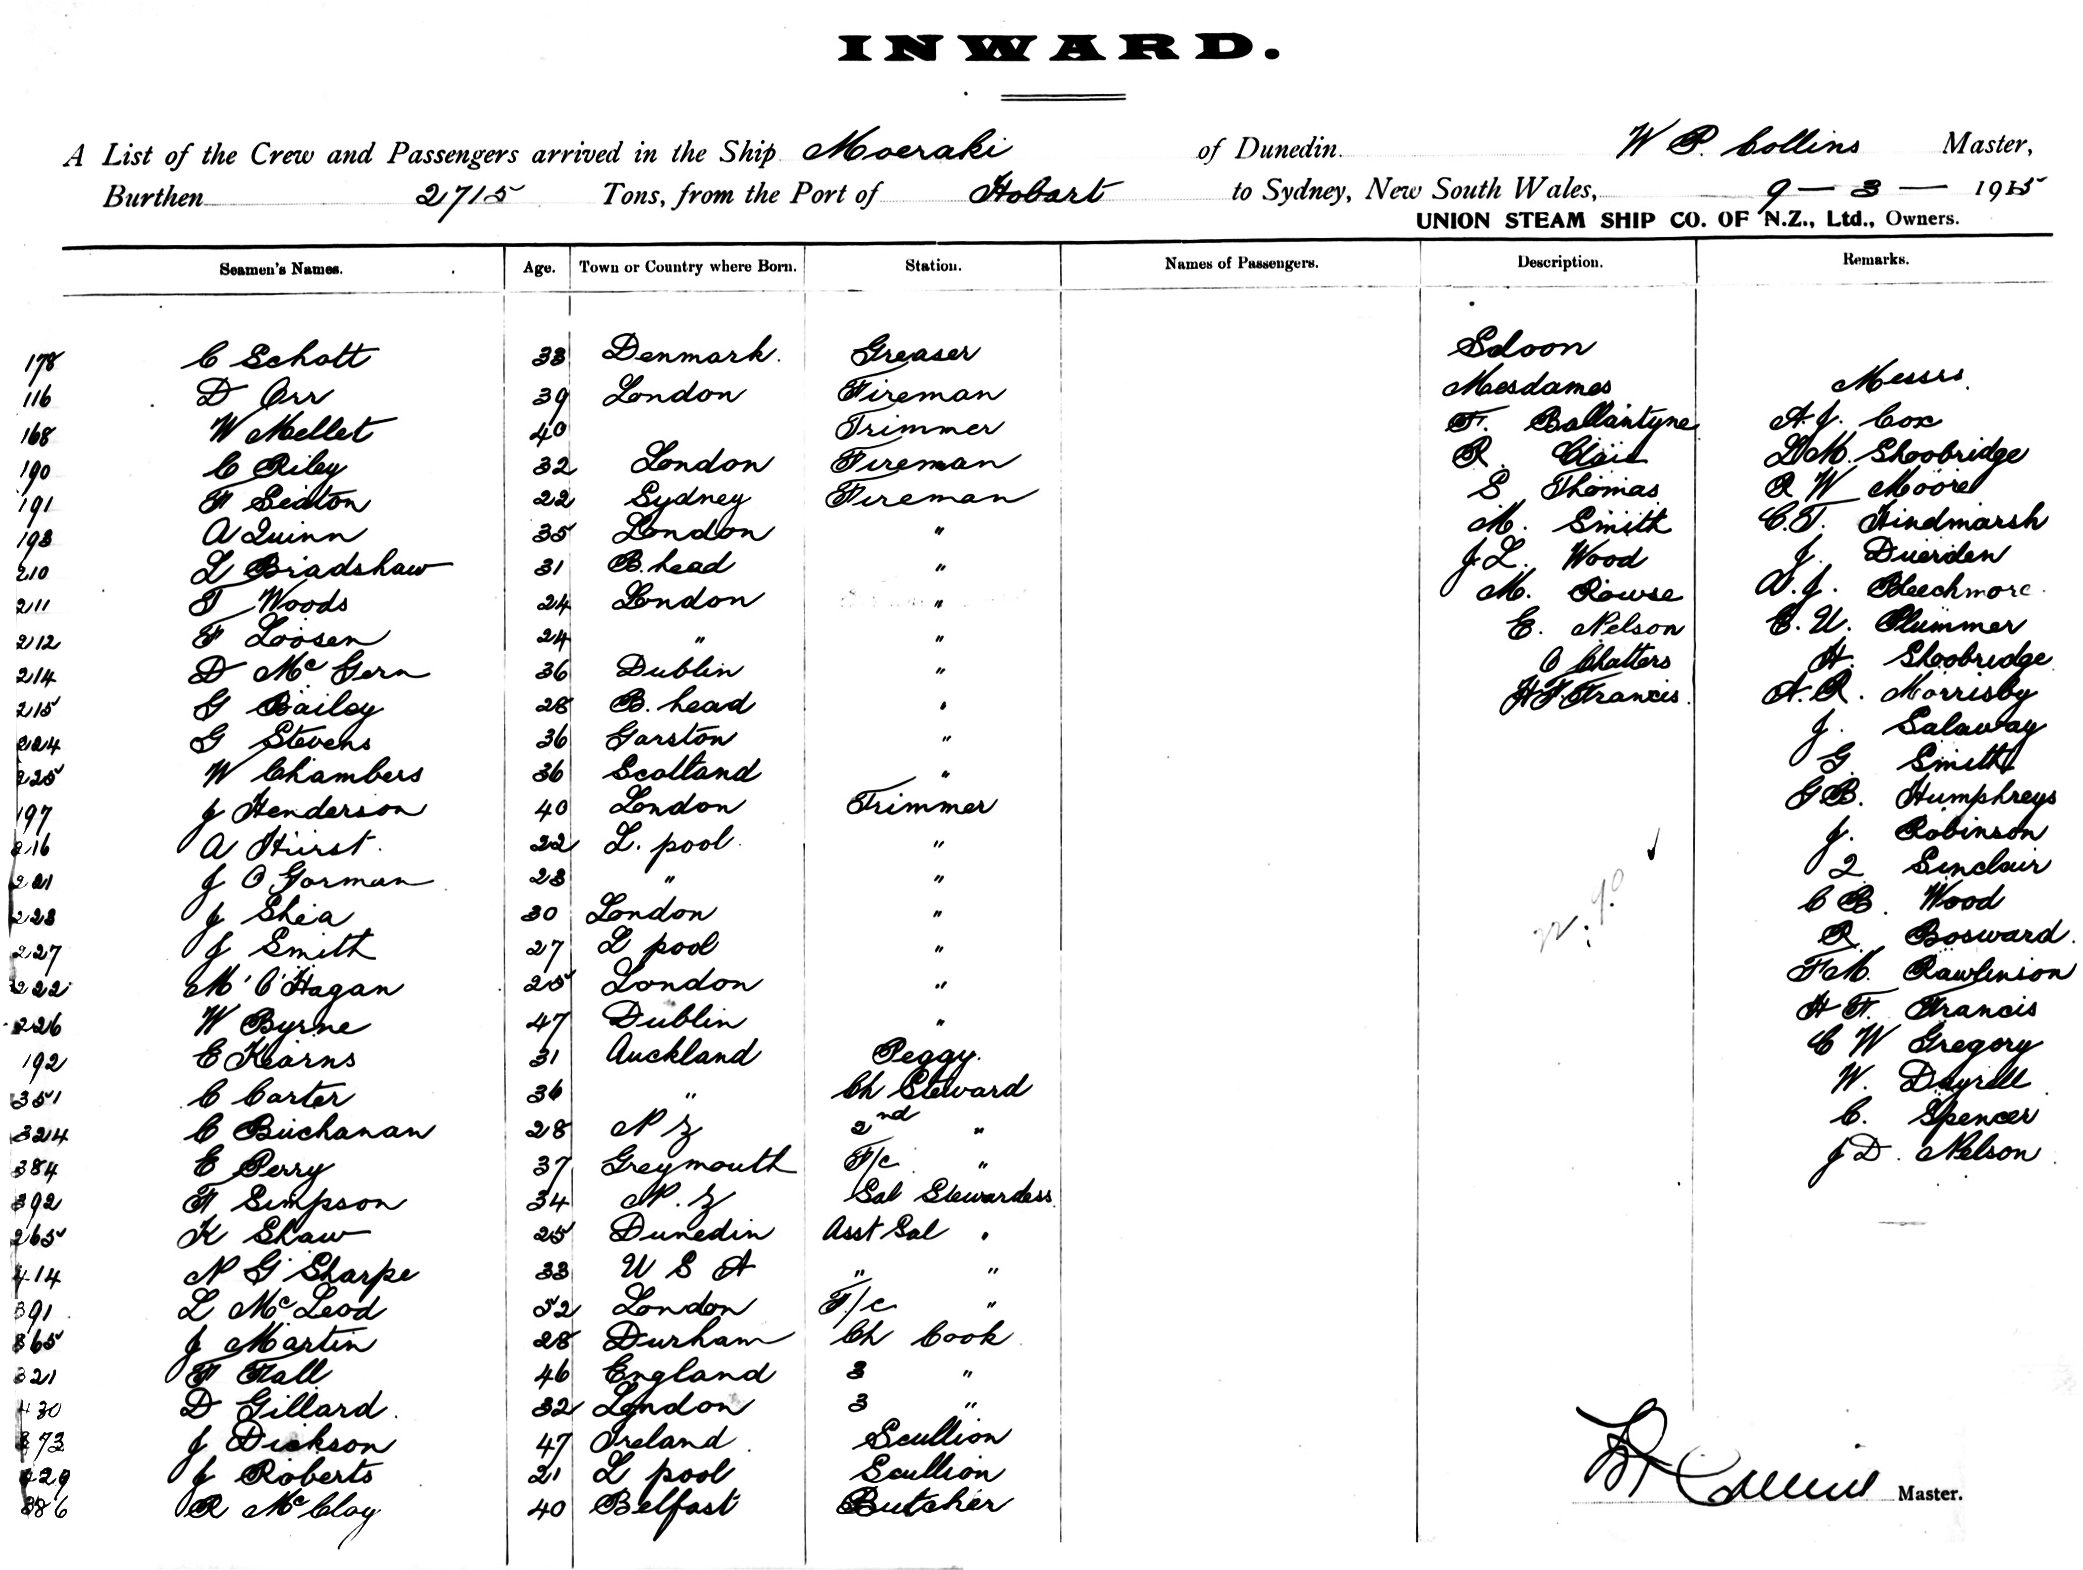 INWARD.
A List of the Crew and Passengers arrived in the Ship Moeraki of Dunedin. W P. Collins Master,
Burthen 2715 Tons, from the Port of Hobart to Sydney, New South Wales, 9 — 3 — 1915
UNION STEAM SHIP CO. OF N.Z., Ltd., Owners.
Seamen's Names. Age. Town or Country where Born. Station. Names of Passengers. Description. Remarks.
178 C Schott 33 Denmark. Greaser Saloon
116 D Orr 39 London Fireman Mesdames Messrs
168 W Mellet 40 Trimmer F. Ballantyne A.J. Cox
190 C Riley 32 London Fireman R Clair L M. Shoobridge
191 F Seaton 22 Sydney Fireman S Thomas R W Moore
193 A Quinn 35 London " M. Smith C.T. Hindmarsh
210 L Bradshaw 31 B. head " J L. Wood J. Duerden
211 T Woods 24 London " M. Rowse A.J. Beechmore
212 F Loosen 24 " " E. Nelson E. U. Plummer
214 D Mc Gern 36 Dublin " C Chatters H. Shoobridge
215 G Bailey 28 B. head " H F. Francis. A. R. Morrisby
224 G Stevens 36 Garston " J. Salaway
225 W Chambers 36 Scotland " G. Smith
197 J Henderson 40 London Trimmer G B. Humphreys
216 A Hurst. 22 L. pool " J. Robinson
221 J O Gorman 23 " " Q Sinclair
223 J Shea 30 London " C B. Wood
227 J Smith 27 L pool " R Bosward.
222 M' O'Hagan 25 London " F M. Rawlinson
226 W Byrne 47 Dublin " H F. Francis
192 E Kearns 31 Auckland Peggy. C W Gregory
351 C Carter 36 " Ch Steward W. Dayrell
324 C Buchanan 28 N Z 2nd " C. Spencer
384 E Perry 37 Greymouth F/c " J D. Nelson
392 F Simpson 34 N. Z Sal Stewardess
265 K Shaw 25 Dunedin Asst Sal "
414 N G Sharpe 33 U S A " "
391 L McLeod 52 London F/c "
365 J Martin 28 Durham Ch Cook
321 F Hall 46 England 3 "
430 D Gillard. 32 London 3 "
373 J Dickson 47 Ireland Scullion
429 J Roberts 21 L pool Scullion
386 R McCloy 40 Belfast Butcher
Collins Master.